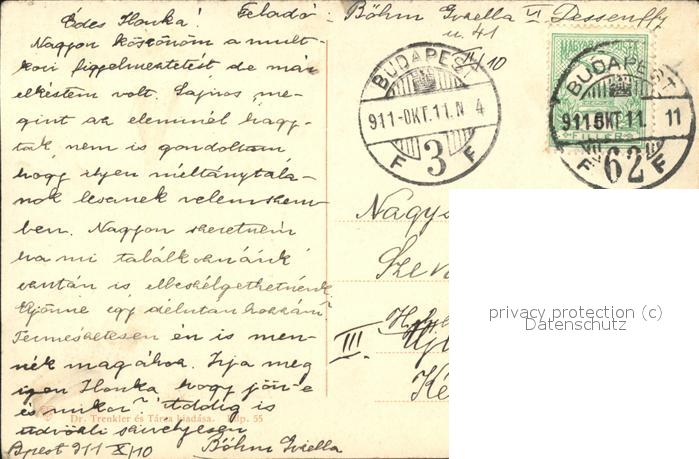 Édes Ilonka! Feladó: Böhm Gizella VI Dessewffy
u. 41
II/10
Nagyon köszönöm a mult-
kori figyelmeztetést de már
elkéstem volt. Sajnos me-
gint az elemnél hagy-
tak nem is gondoltam
hogy ilyen méltánytala-
nok lesznek velem szem-
ben. Nagyon szeretném
ha mi találkoznánk
azután is elbeszélgethetnénk
Eljönne egy délután hozzám?
Természetesen én is men-
nék magához. Írja meg
igen Ilonka hogy jön-e
és mikor? Addig is
üdvözli szivélyesen
Bpest 911 X/10 Böhm Gizella
Dr. Trenkler és Társa kiadása. Bdp. 55
BUDAPEST
911-OKT.11.N 4
F 3 F
MAGYAR
FILLÉR
BUDAPEST
911 OKT.11 11
62 F
Nagys
III.
privacy protection (c)
Datenschutz